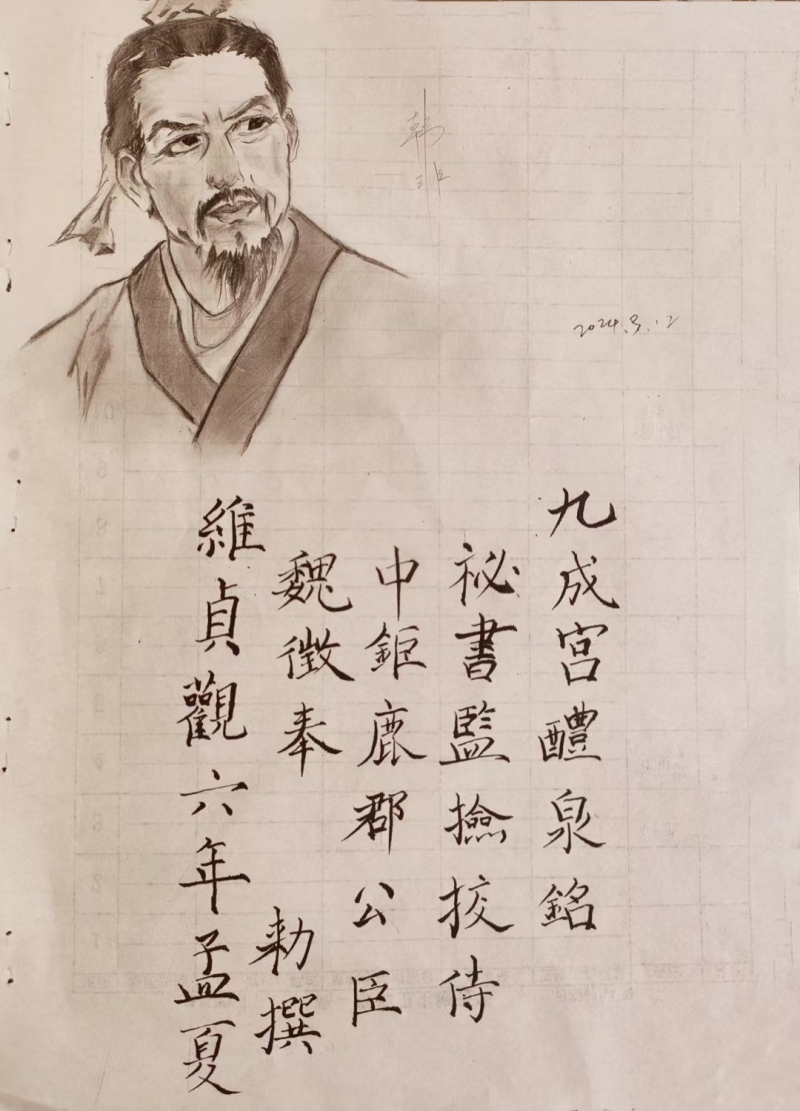 韩非
2024.3.12
九成宫醴泉銘
祕書監撿挍侍
中鉅鹿郡公臣
魏徵奉
勑撰
維貞觀六年孟夏